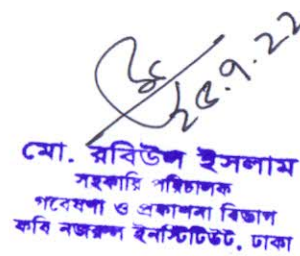 ২৫.৭.২২
মো. রবিউল ইসলাম
সহকারি পরিচালক
গবেষণা ও প্রকাশনা বিভাগ
কবি নজরুল ইনস্টিটিউট, ঢাকা